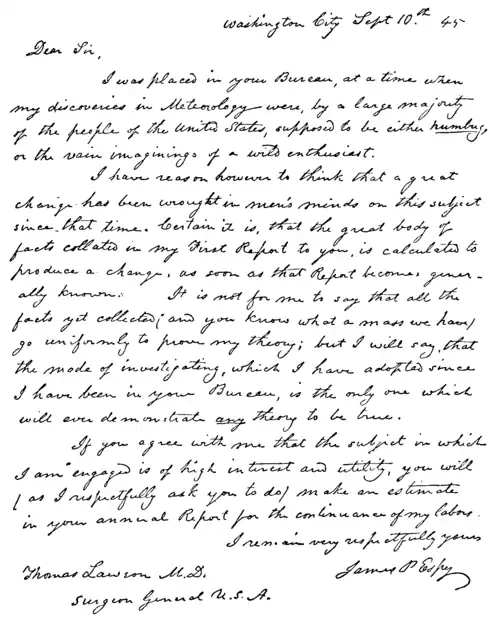 Washington City Sept 10.th 45
Dear Sir,
I was placed in your Bureau, at a time when
my discoveries in Meteorology were, by a large majority
of the people of the United States, supposed to be either humbug,
or the vain imaginings of a wild enthusiast.
I have reason however to think that a great
change has been wrought in men's minds on this subject
since that time. Certain it is, that the great body of
facts collated in my First Report to you, is calculated to
produce a change, as soon as that Report becomes gener-
ally known. It is not for me to say that all the
facts yet collected (and you know what a mass we have)
go uniformly to prove my theory; but I will say, that
the mode of investigating, which I have adopted since
I have been in your Bureau, is the only one which
will ever demonstrate any theory to be true.
If you agree with me that the subject in which
I am engaged is of high interest and utility, you will
(as I respectfully ask you to do) make an estimate
in your annual Report for the continuance of my labors.
I remain very respectfully yours
Thomas Lawson M.D. James P Espy
Surgeon General U.S.A.